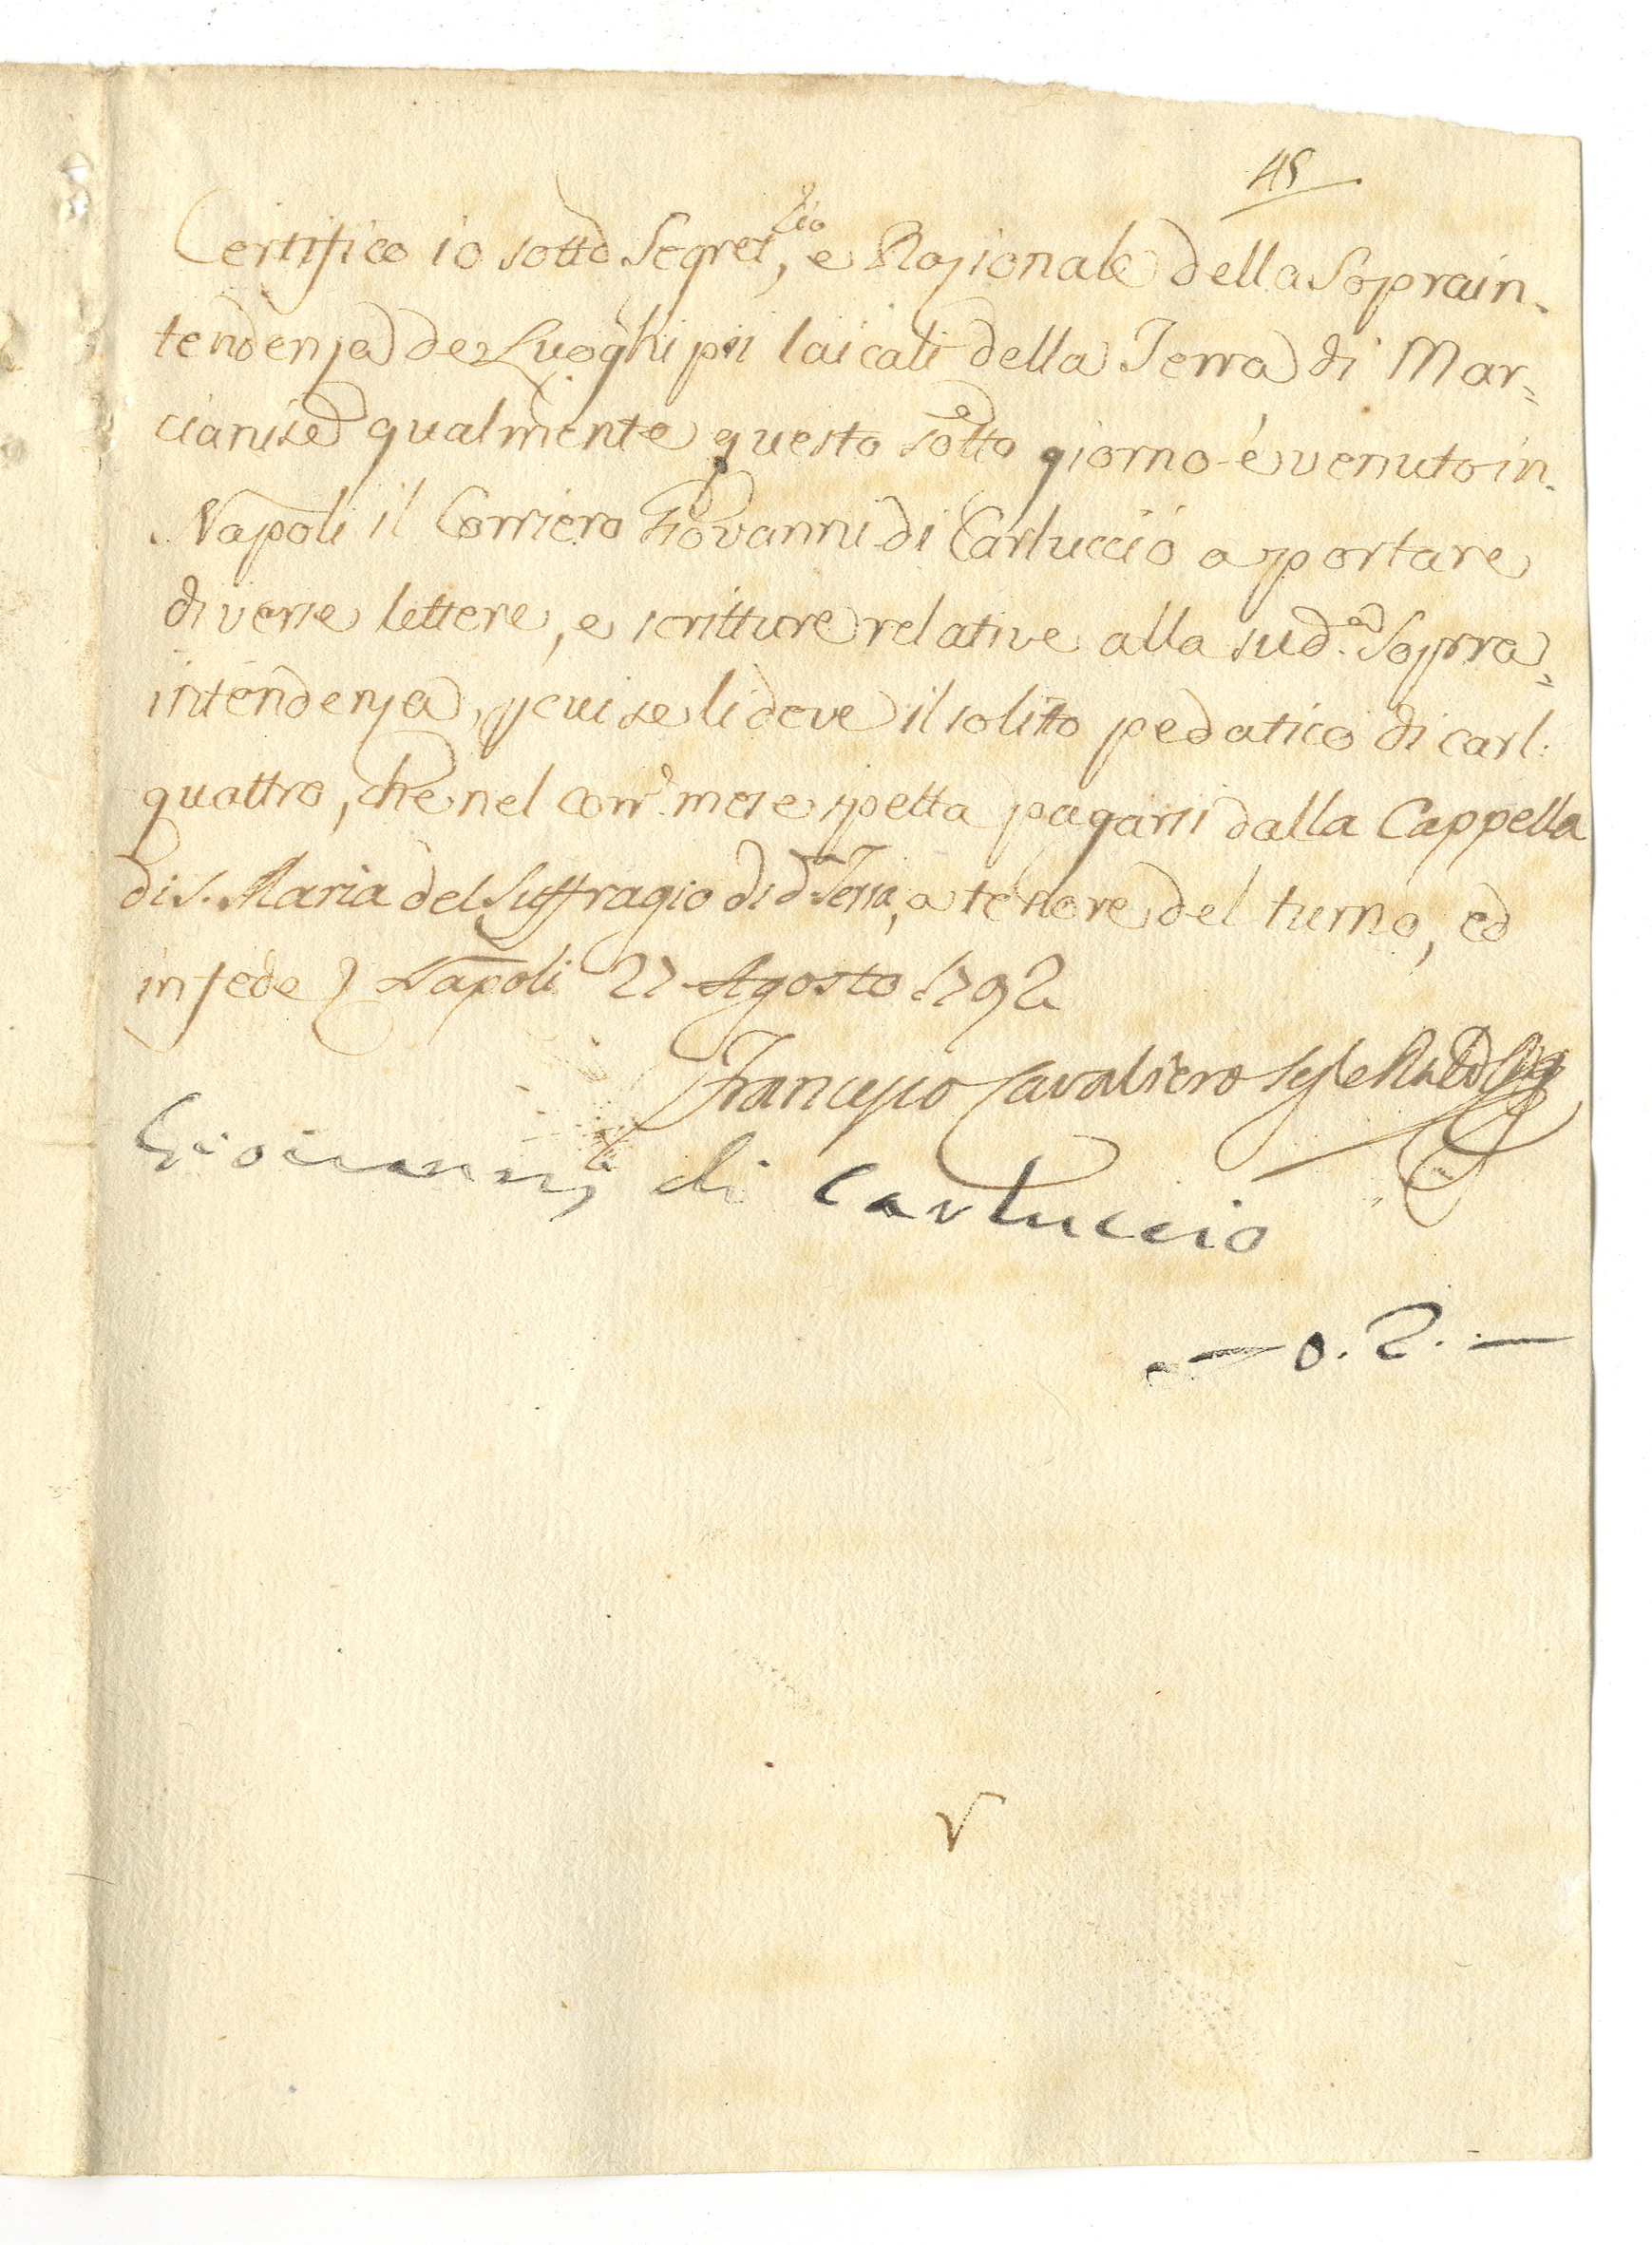 45
Certifico io sotto Segret.rio, e Razionale della Soprain-
tendenza de Luoghi pii laicali della Terra di Mar=
cianise qualmente questo sotto giorno è venuto in
Napoli il Corriero Giovanni di Carluccio a portare
diverse lettere, e scritture relative alla sud.a Sopra=
intendenza, p cui se li deve il solito pedatico di carl:
quattro, che nel corr.e mese spetta pagarsi dalla Cappella
di S. Maria del Suffragio di d.a Terra, a tenore del turno, ed
in fede Napoli 27 Agosto 1792
Francesco Cavaliero Seg.
Giovanni di Carluccio